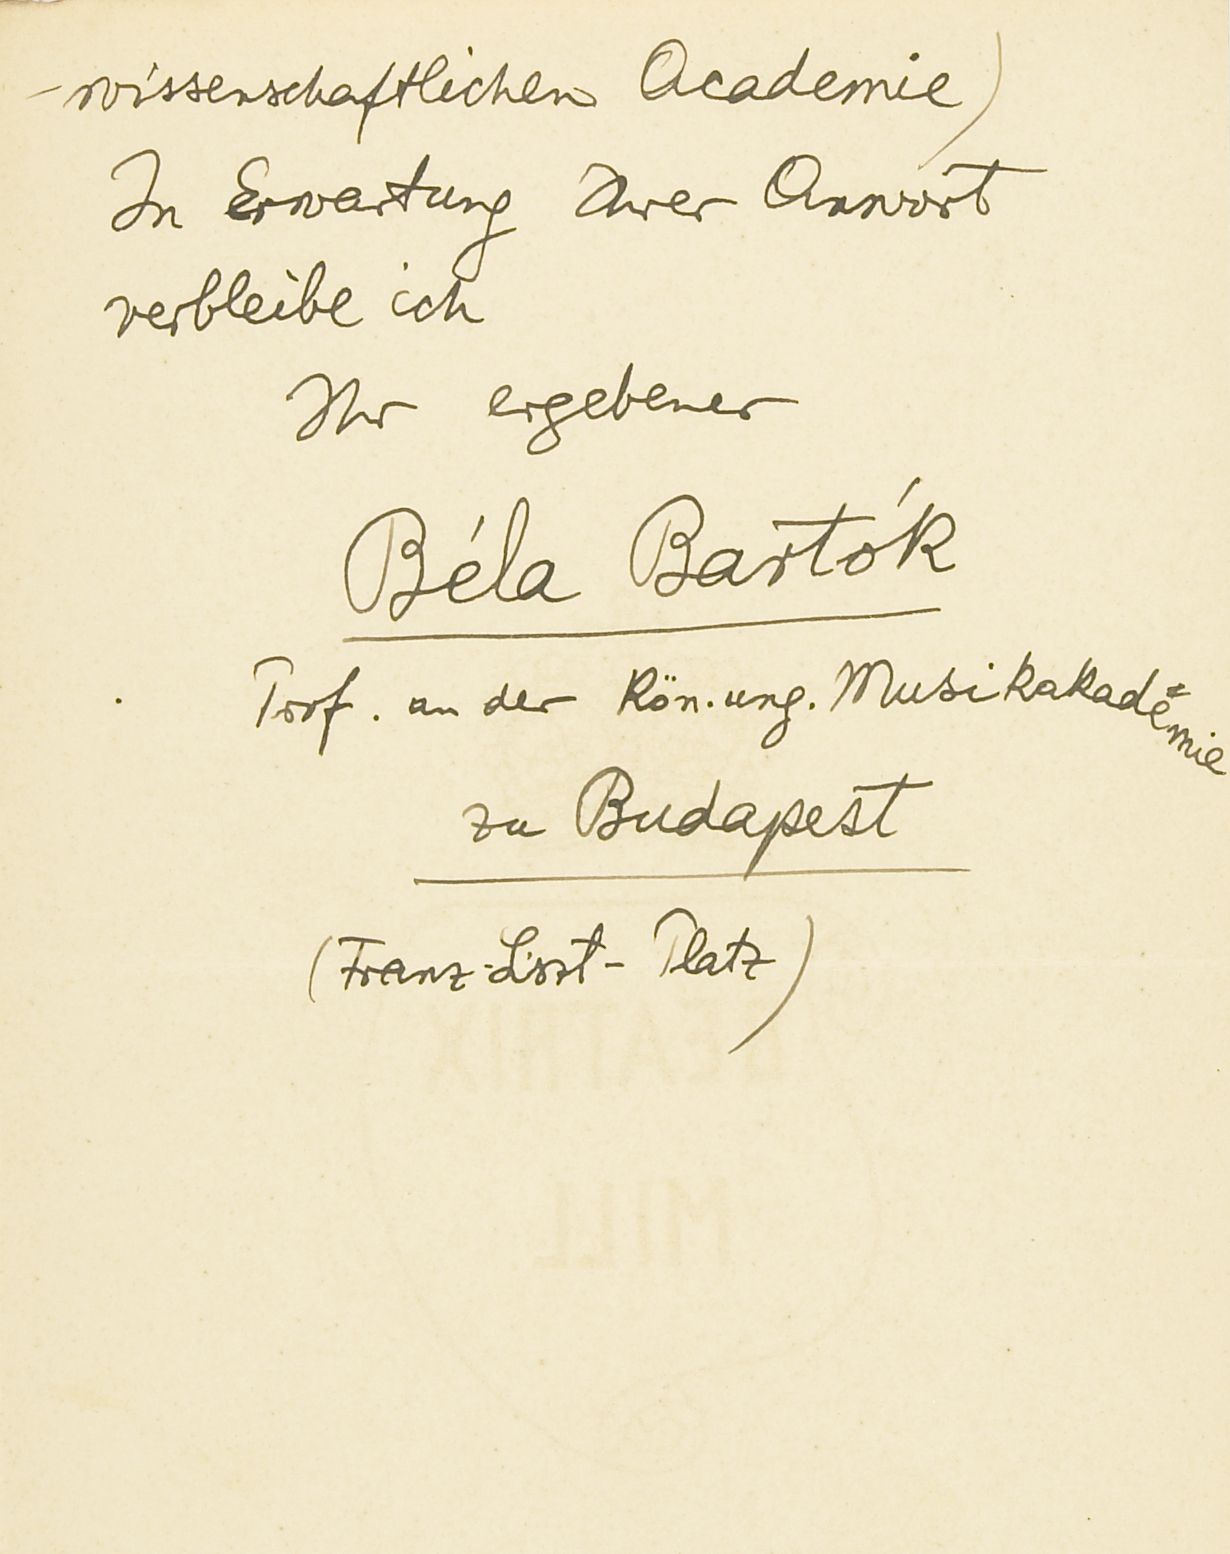 -wissenschaftlichen Academie)
In Erwartung Ihrer Anwort
verbleibe ich
Ihr ergebener
Béla Bartók
Prof. an der kön. ung. Musikakademie
zu Budapest
(Franz-Liszt-Platz)
BEATRIX
MILL